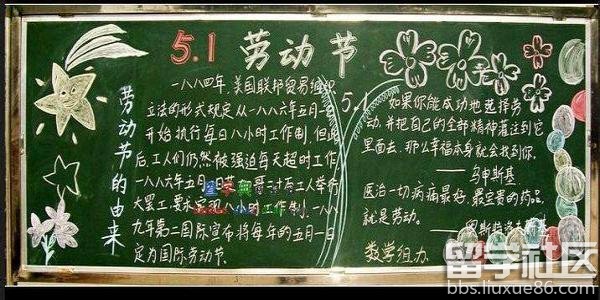 5.1 劳动节
劳动节的由来
一八八四年,美国联邦贸易组织
立法的形式规定从一八八六年五月一日
开始执行每日八小时工作制,但此
后工人们仍然被强迫每天超时工作。
一八八六年五月一日芝加哥二十万工人举行
大罢工,要求实现八小时工作制,一八八
九年第二国际宣布将每年的五月一日
定为国际劳动节。
5.1
如果你能成功地选择劳
动,并把自己的全部精神灌注到它
里面去,那么幸福本身就会找到你。
——乌申斯基
医治一切病痛最好、最宝贵的药品,
就是劳动。
——奥斯特洛夫斯基
数学组办
留学社区
bbs.liuxue86.com